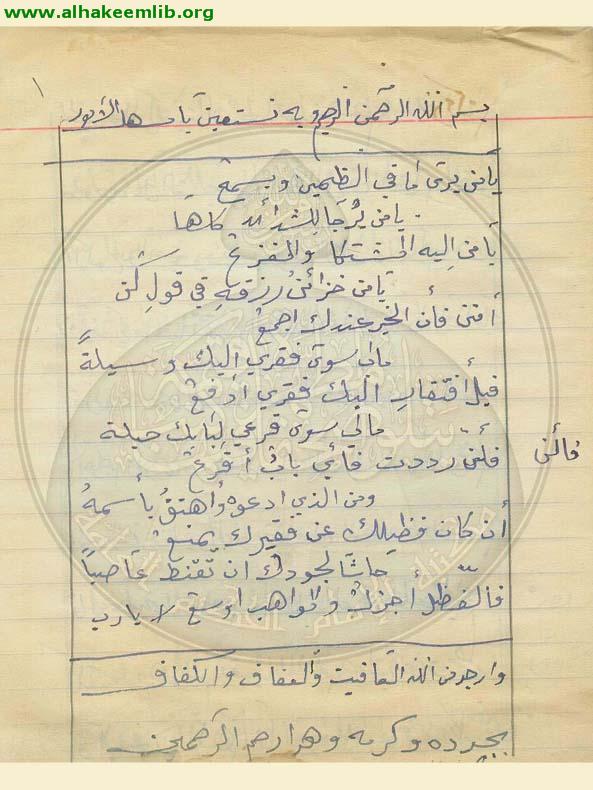 www.alhakeemlib.org
١
بسم الله الرحمن الرحيم وبه نستعين يا مسهل الأمور
يا من يرى ما في الظمير ويسمع
يا من يُرجا للشدائد كلها
يا من إليه المشتكا والمفزع
يا من خزائن رزقه في قولِ كن
أمنن فأن الخير عندك اجمع
مالي سوى فقري اليك وسيلةً
فبأفتقارِ اليك فقري أدفع
مالي سوى قرعي لبابك حيلة
فلئن رددت فأي بابٍ أقرع
فالئن
ومن الذي ادعوه وأهتفُ بأسمهُ
أن كان فظلك عن فقيرك يمنع
حاشا لجودك ان تقنط عاصياً
فالفظل أجزل والمواهب اوسع لا يارب
وارجو من الله العافيت والعفاف والكفاف
بجوده وكرمه وهو ارحم الرحمين